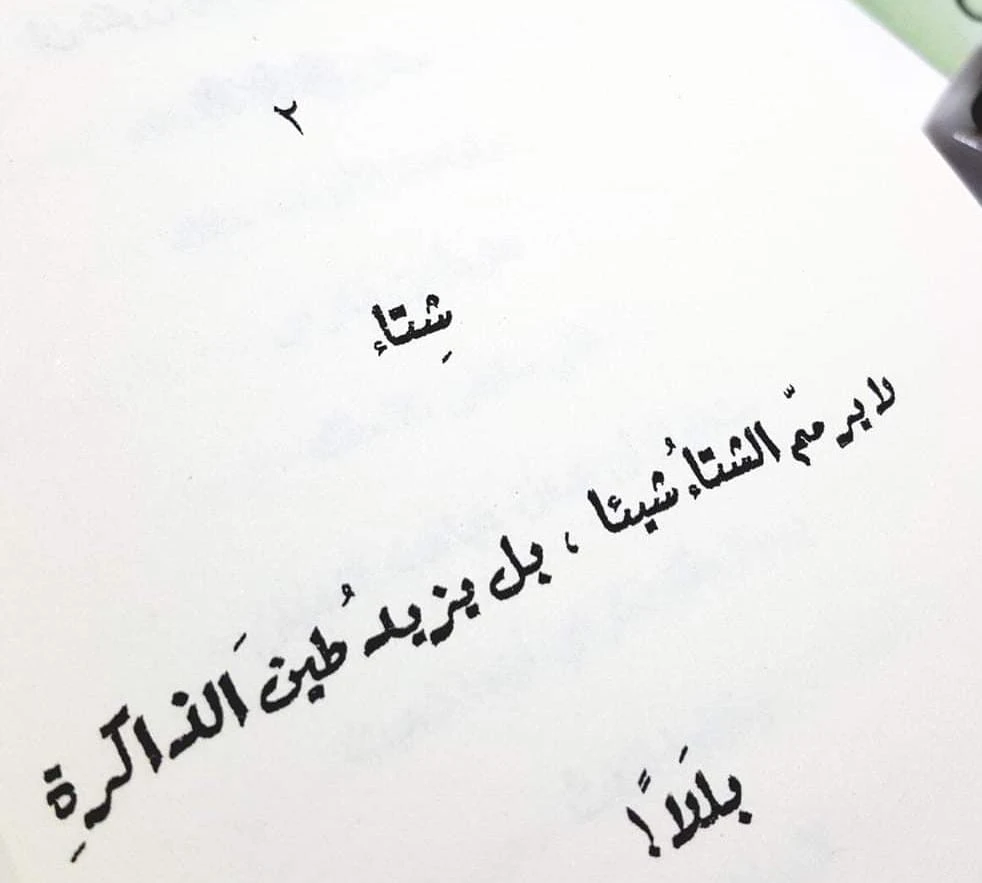 ٢
شِتاء
لا يرممّ الشتاءُ شيئا ، بل يزيدُ طينَ الذاكرةِ
بلَلاً !